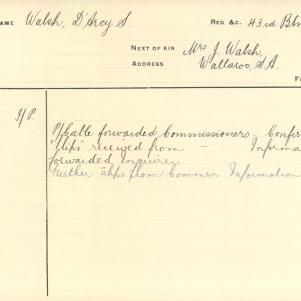 NAME Walsh, D'Arcy S. REG &C. 43rd Btn
NEXT OF KIN Mrs J. Walsh,
ADDRESS Wallaroo, S.A.
P/Cable forwarded Commissioners. Confer
"slips" received from — Informa
forwarded inquirer
Further slips from Commrs. Information